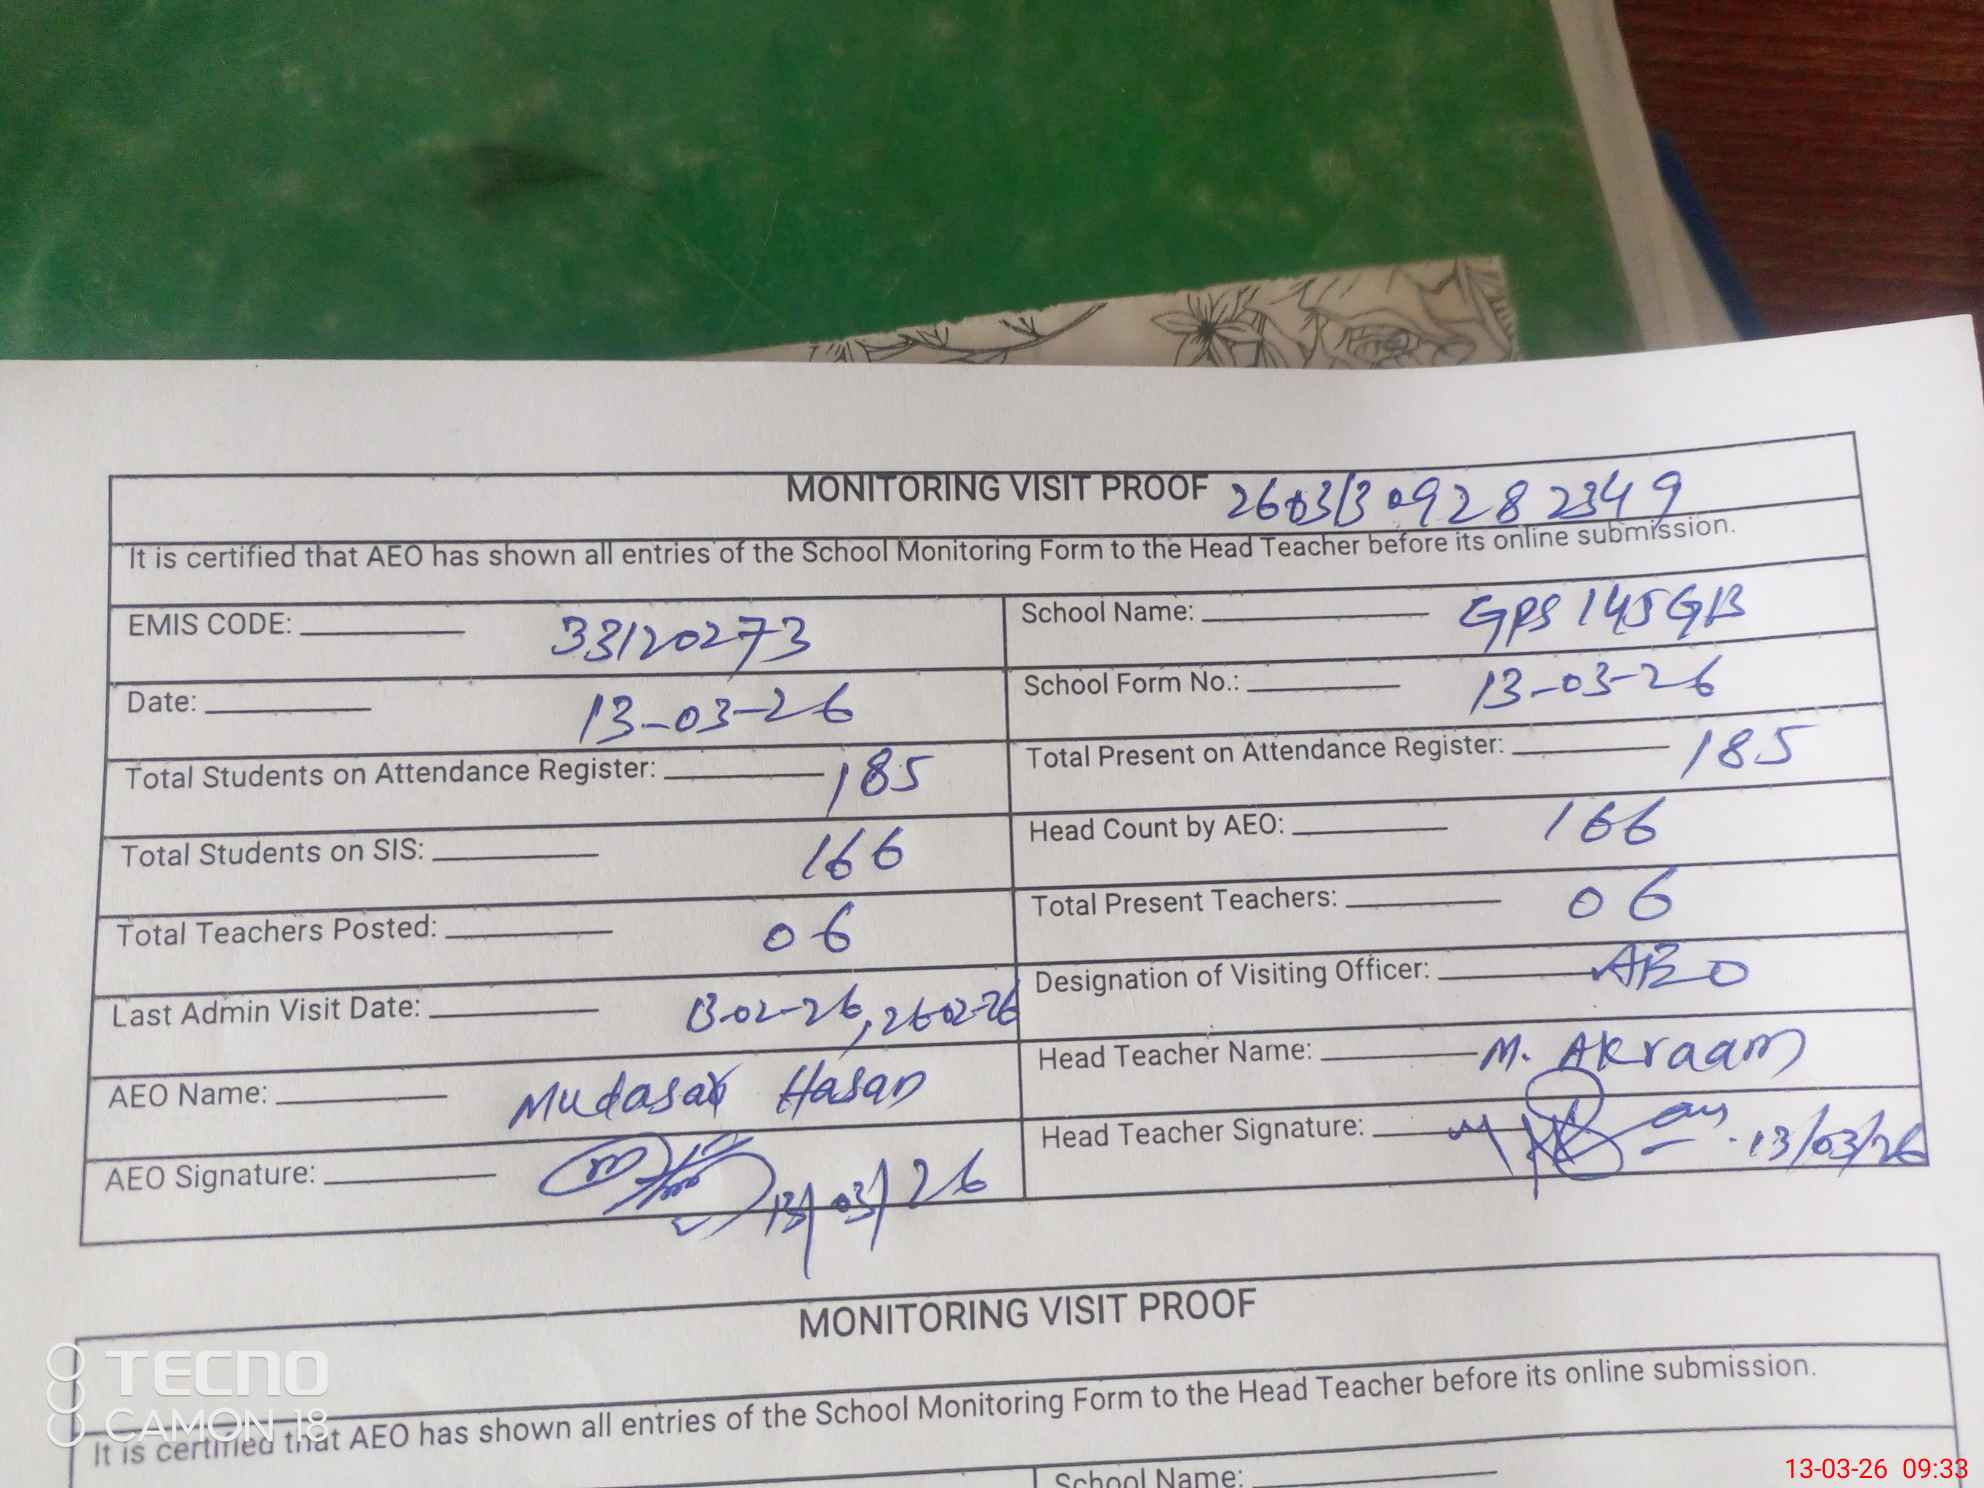 MONITORING VISIT PROOF 2603130928 2349
It is certified that AEO has shown all entries of the School Monitoring Form to the Head Teacher before its online submission.
EMIS CODE: 33120273 School Name: GPS 145 GB
Date: 13-03-26 School Form No.: 13-03-26
Total Students on Attendance Register: 185 Total Present on Attendance Register: 185
Total Students on SIS: 166 Head Count by AEO: 166
Total Teachers Posted: 06 Total Present Teachers: 06
Last Admin Visit Date: 13-02-26, 26-02-26 Designation of Visiting Officer: AEO
AEO Name: Mudasar Hasan Head Teacher Name: M. Akraam
AEO Signature: 13/03/26 Head Teacher Signature: 13/03/26
MONITORING VISIT PROOF
It is certified that AEO has shown all entries of the School Monitoring Form to the Head Teacher before its online submission.
School Name:
TECNO
CAMON 18
13-03-26 09:33